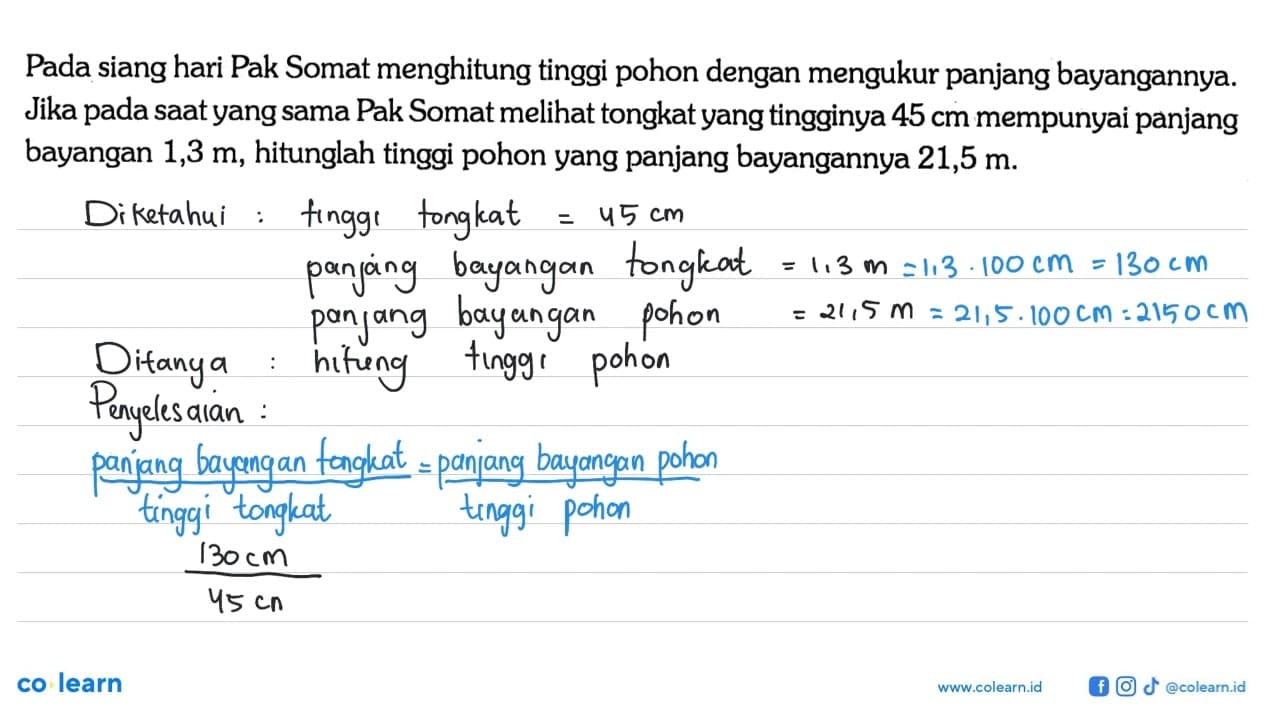 Pada siang hari Pak Somat menghitung tinggi pohon dengan mengukur panjang bayangannya.
Jika pada saat yang sama Pak Somat melihat tongkat yang tingginya 45 cm mempunyai panjang
bayangan 1,3 m, hitunglah tinggi pohon yang panjang bayangannya 21,5 m.
Diketahui : tinggi tongkat = 45 cm
panjang bayangan tongkat = 1,3 m = 1,3 . 100 cm = 130 cm
panjang bayangan pohon = 21,5 m = 21,5 . 100 cm = 2150 cm
Ditanya : hitung tinggi pohon
Penyelesaian :
panjang bayangan tongkat = panjang bayangan pohon
tinggi tongkat tinggi pohon
130 cm
45 cm
co learn www.colearn.id @colearn.id